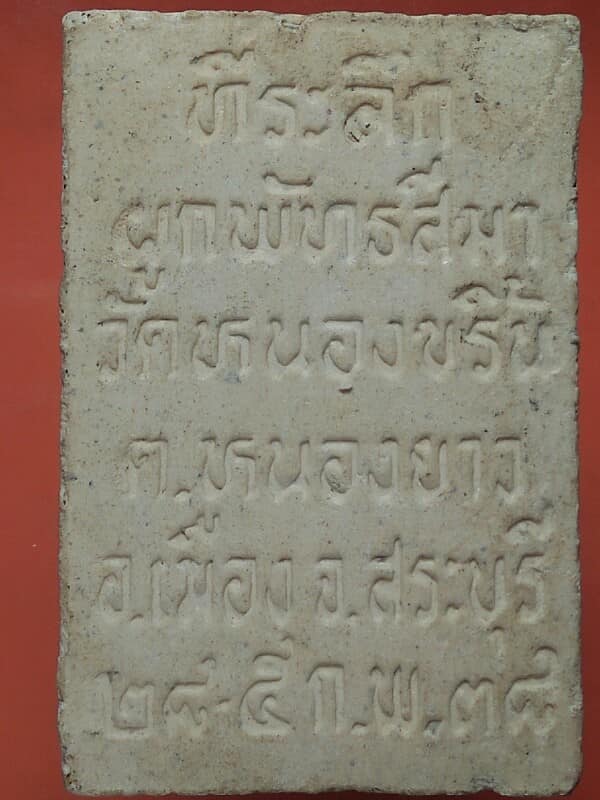 ที่ระลึก
ผูกพัทธสีมา
วัดหนอง
ต.หนองยาว
อ.เมือง จ.สระบุรี
๒๘-๕ ก.พ.๓๘